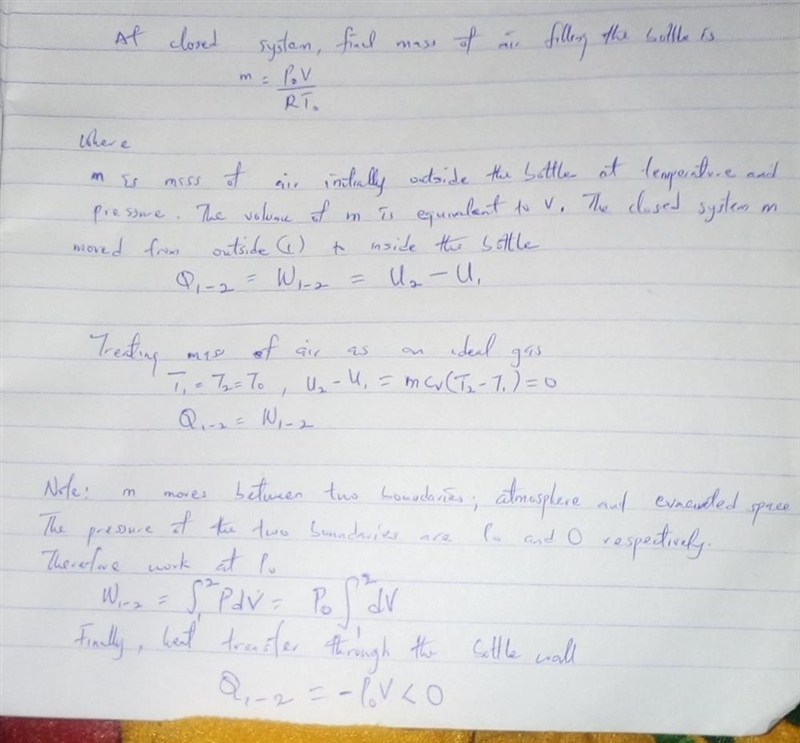 At closed system, final mass of air filling the bottle is
m = P₀V / RT₀
Where
m is mass of air initially outside the bottle at temperature and
pressure. The volume of m is equivalent to V. The closed system m
moved from outside (1) to inside the bottle
Q₁₋₂ = W₁₋₂ = U₂ - U₁
Treating mass of air as an ideal gas
T₁ = T₂ = T₀, U₂ - U₁ = mcv(T₂ - T₁) = 0
Q₁₋₂ = W₁₋₂
Note: m moves between two boundaries; atmosphere and evacuated space
The pressure at the two boundaries are P₀ and 0 respectively.
Therefore work at P₀
W₁₋₂ = ∫₁² PdV = P₀ ∫₁² dV
Finally, heat transfer through the bottle wall
Q₁₋₂ = -P₀V < 0